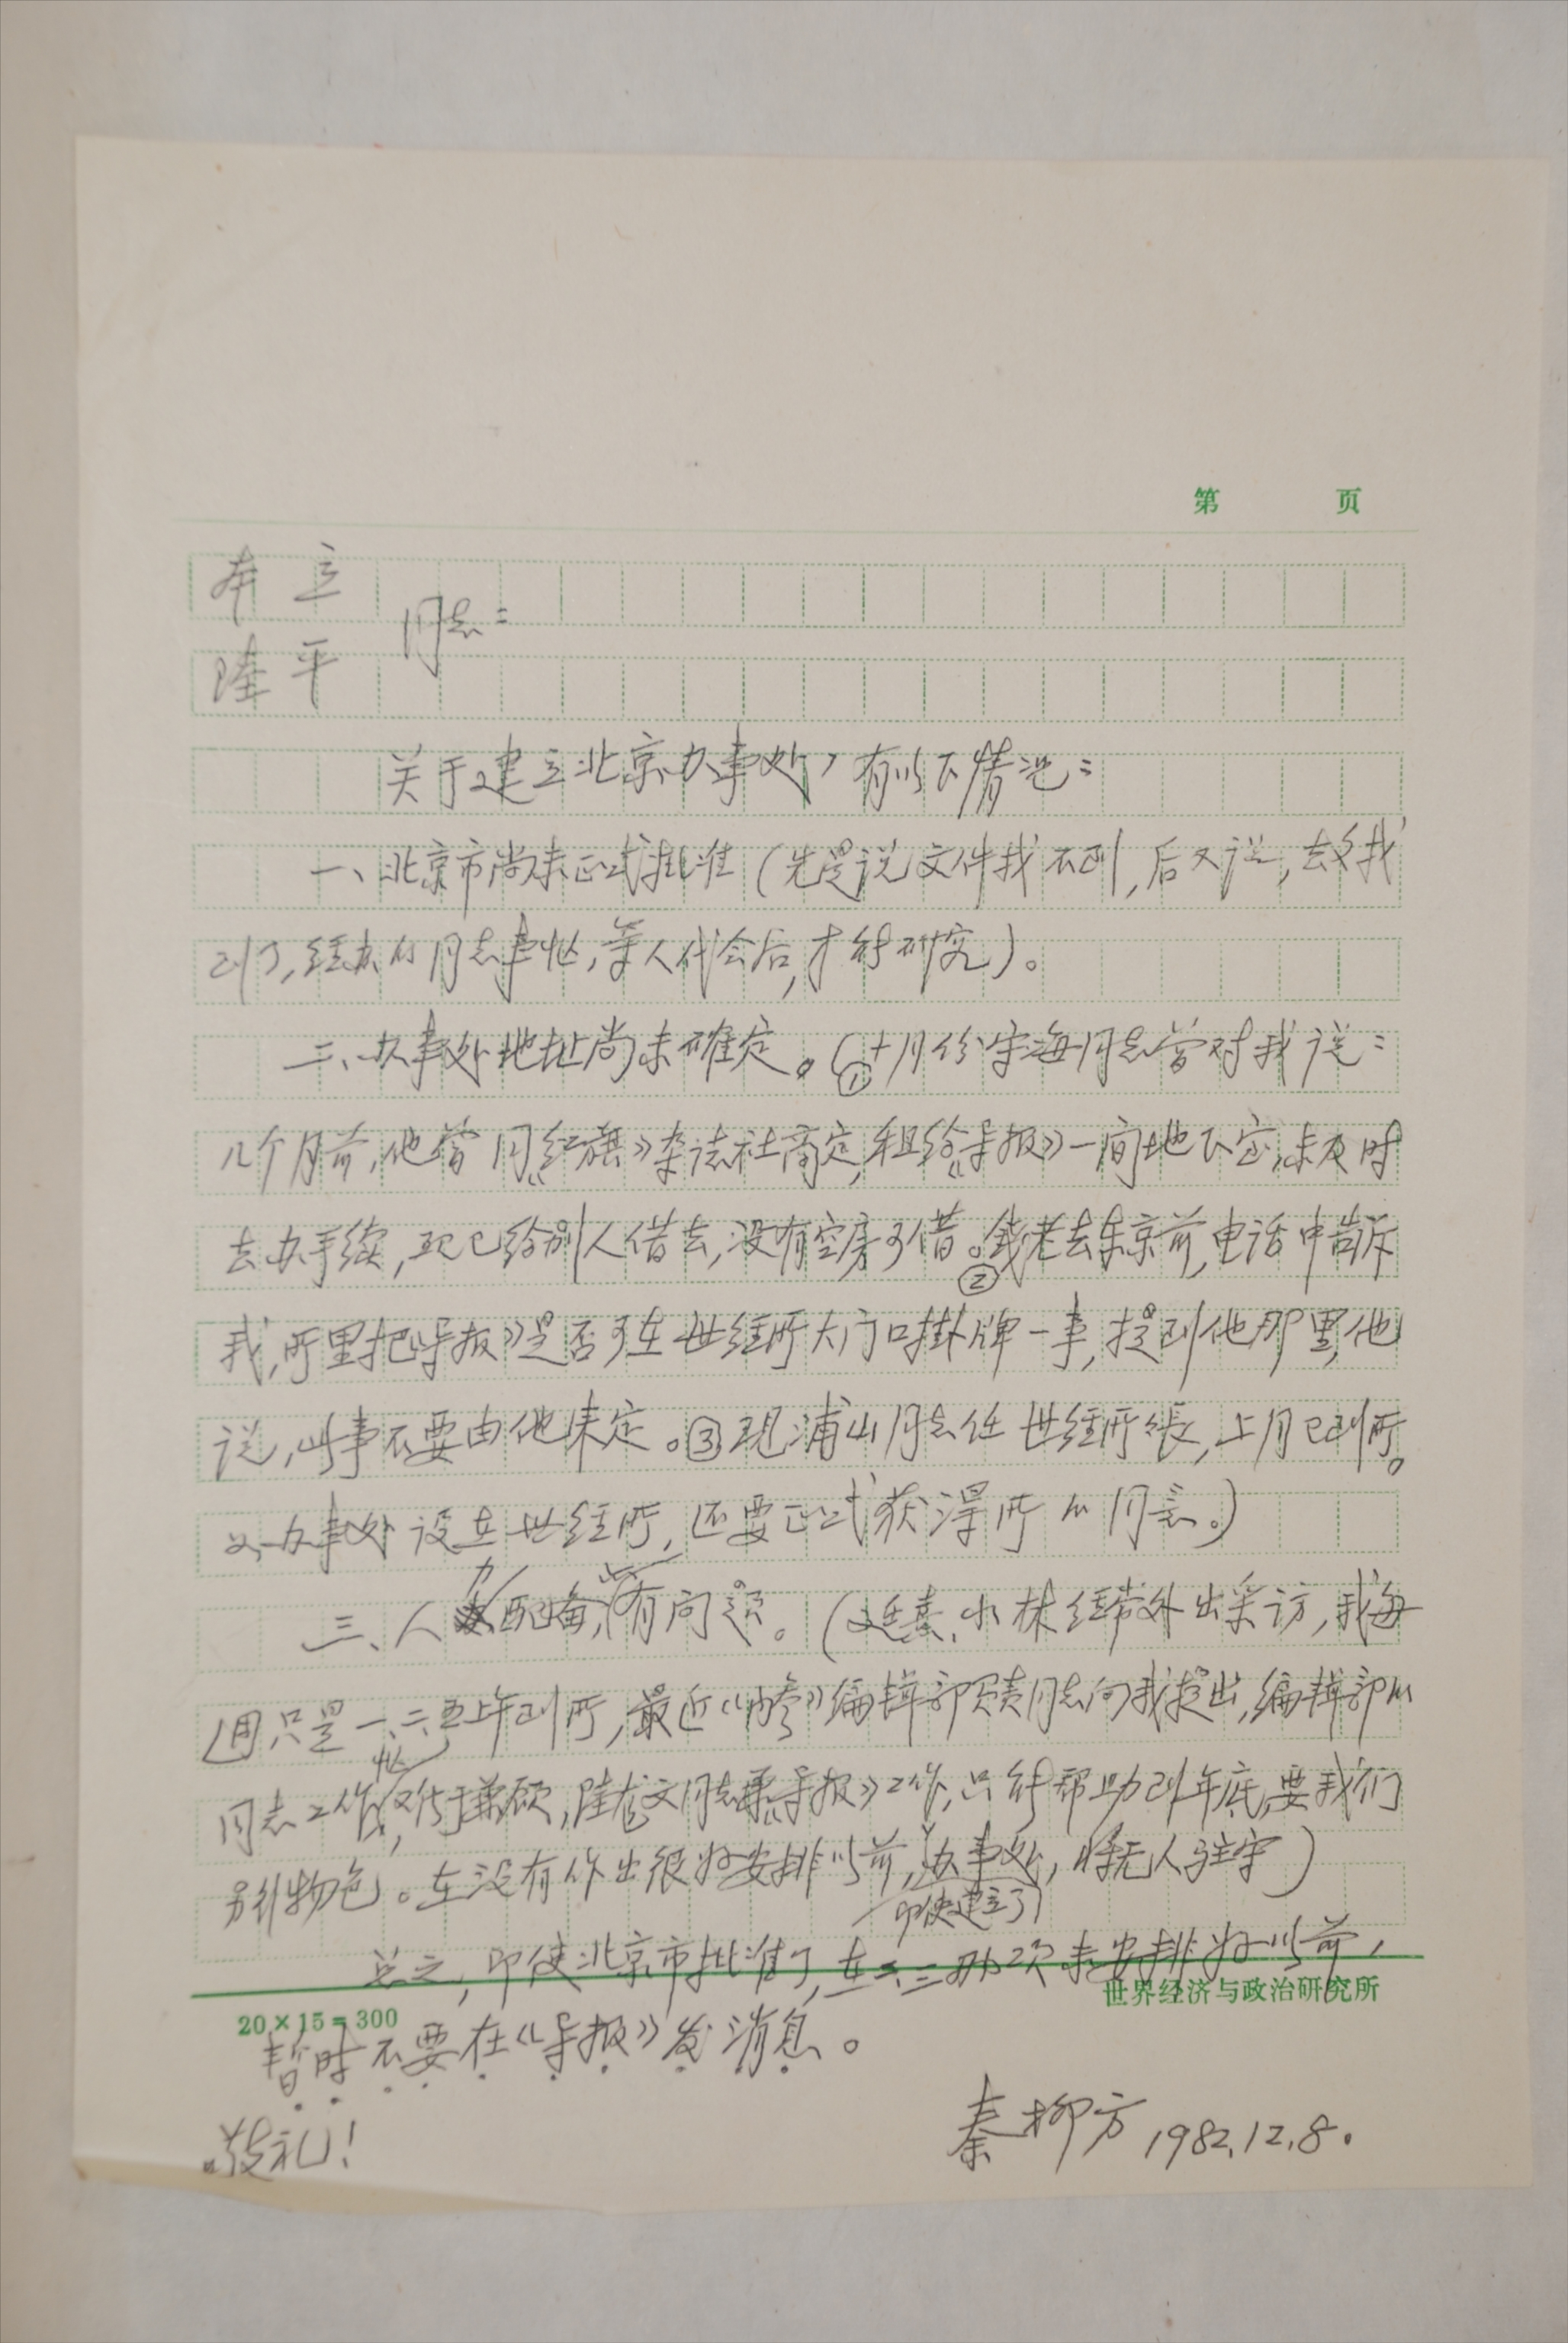 第 页
本立
同志：
陆平
关于建立北京办事处，有以下情况：
一、北京市尚未正式批准（先是说文件找不到，后又说，去找
到了，经办的同志事忙，等人代会后，才能研究）。
二、办事处地址尚未确定。（①十月份宋海同志曾对我说：
几个月前，他曾同《红旗》杂志社商定，租给《导报》一间地下室，未及时
去办手续，现已给别人借去，没有空房可借。②钱老去东京前，电话中告诉
我，所里把《导报》是否可在世经所大门口掛牌一事，提到他那里，他
说，此事不要由他来定。③现浦山同志任世经所长，上月已到所。
办事处设在世经所，还要正式获得所的同意。）
三、人力配备，也有问题。（小林经常外出采访，我每
周只是一、三、五上午到所，最近《内参》编辑部负责同志向我提出，编辑部的
同志工作忙，难于兼顾，陆文同志兼《导报》工作，只能帮助到年底，要我们
别物色。在没有作出很好安排以前，办事处，即使建立了，将无人驻守）
总之，即使北京市批准了，在二、三两次未安排好以前，
世界经济与政治研究所
20×15=300
暂时不要在《导报》发消息。
敬礼！
秦柳方 1982.12.8.